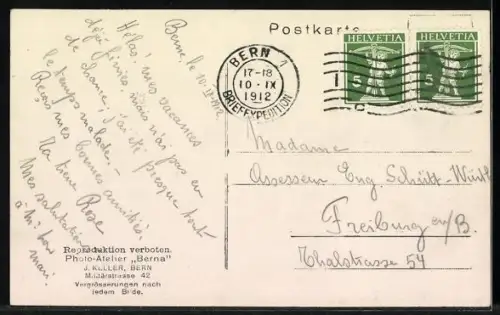 Postkarte
HELVETIA
5
HELVETIA
5
BERN 1
17-18
10-IX
1912
BRIEFEXPEDITION
Berne, le 10 IX 1912
Hélas! mes vacances
déjà finies, mais n'ai pas eu
de chance, j'ai été presque tout
le temps malade. –
Reçois mes bonnes amitiés
Ta Rose
Mes salutations
à Mr ton
mari
Madame
Assessor Eng. Schütt-Würth
Freiburg en/B.
Thalstrasse 54
Reproduktion verboten.
Photo-Atelier „Berna"
J. KELLER, BERN
Militärstrasse 42
Vergrösserungen nach
jedem Bilde.